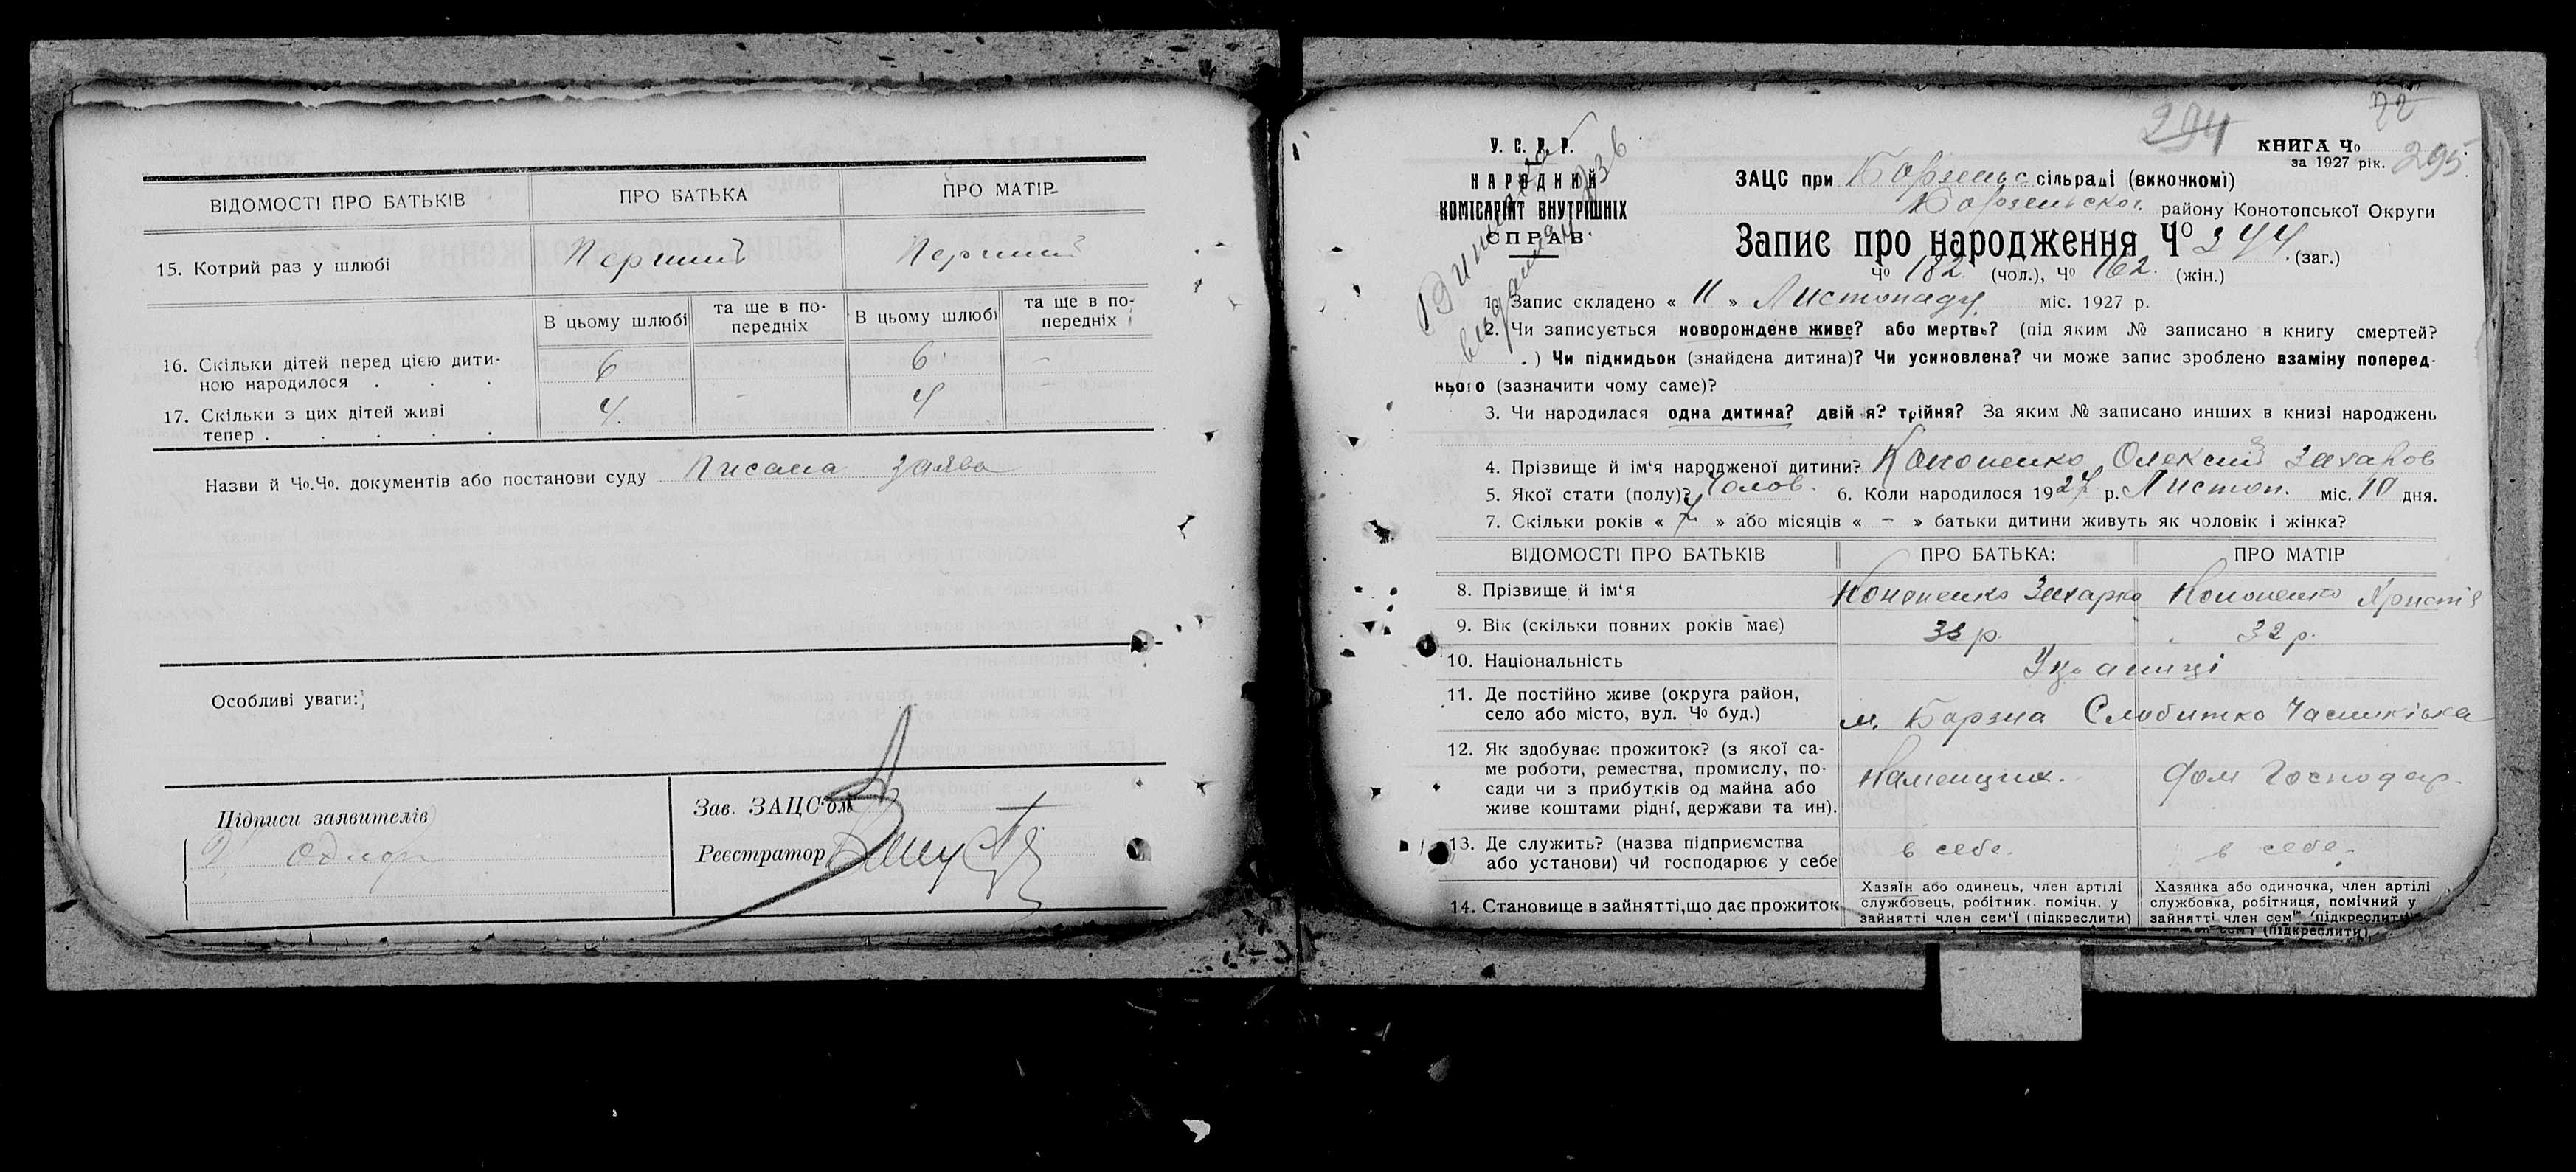 ВІДОМОСТІ ПРО БАТЬКІВ ПРО БАТЬКА ПРО МАТІР
15. Котрий раз у шлюбі Перший Перший
В цьому шлюбі та ще в по-передніх В цьому шлюбі та ще в по-передніх
16. Скільки дітей перед цією дити-
ною народилося . . . 6 - 6 -
17. Скільки з цих дітей живі
тепер . . . . . 4 - 4 -
Назви й Чо.Чо. документів або постанови суду Писана заява
Особливі уваги:
Підписи заявителів
Зав. ЗАЦС'ом
Реєстратор
294
72
295
У. С. Р. Р.
НАРОДНИЙ
КОМІСАРІЯТ ВНУТРІШНІХ
СПРАВ
КНИГА Чо
за 1927 рік.
ЗАЦС при Борзенськ сільраді (виконкомі)
Борзенськог. району Конотопської Округи
Запис про народження Чо 344 (заг.)
Чо 182 (чол.), Чо 162. (жін.)
1. Запис складено « 11 » Листопаду міс. 1927 р.
2. Чи записується новорождене живе? або мертве? (під яким № записано в книгу смертей?
.) Чи підкидьок (знайдена дитина)? Чи усиновлена? чи може запис зроблено взаміну поперед-
нього (зазначити чому саме)?
3. Чи народилася одна дитина? двійня? трійня? За яким № записано инших в книзі народжень
4. Прізвище й ім'я народженої дитини? Кононенко Олексій Захаров
5. Якої стати (полу)? Чолов. 6. Коли народилося 1927 р. Листоп. міс. 10 дня.
7. Скільки років « » або місяців « - » батьки дитини живуть як чоловік і жінка?
ВІДОМОСТІ ПРО БАТЬКІВ ПРО БАТЬКА: ПРО МАТІР
8. Прізвище й ім'я Кононенко Захарко Кононенко Христя
9. Вік (скільки повних років має) 33 р. 32 р.
10. Національність Українці
11. Де постійно живе (округа район,
село або місто, вул. Чо буд.) м. Борзна Слобитко
12. Як здобуває прожиток? (з якої са-
ме роботи, ремества, промислу, по-
сади чи з прибутків од майна або
живе коштами рідні, держави та ин). Каменщик. Дом Господар.
13. Де служить? (назва підприємства
або установи) чи господарює у себе в себе. в себе.
14. Становище в зайнятті, що дає прожиток
Хазяїн або одинець, член артілі
службовець, робітник. помічн. у
зайнятті член сем'ї (підкреслити)
Хазяйка або одиночка, член артілі
службовка, робітниця, помічний у
зайнятті член сем'ї (підкреслити)